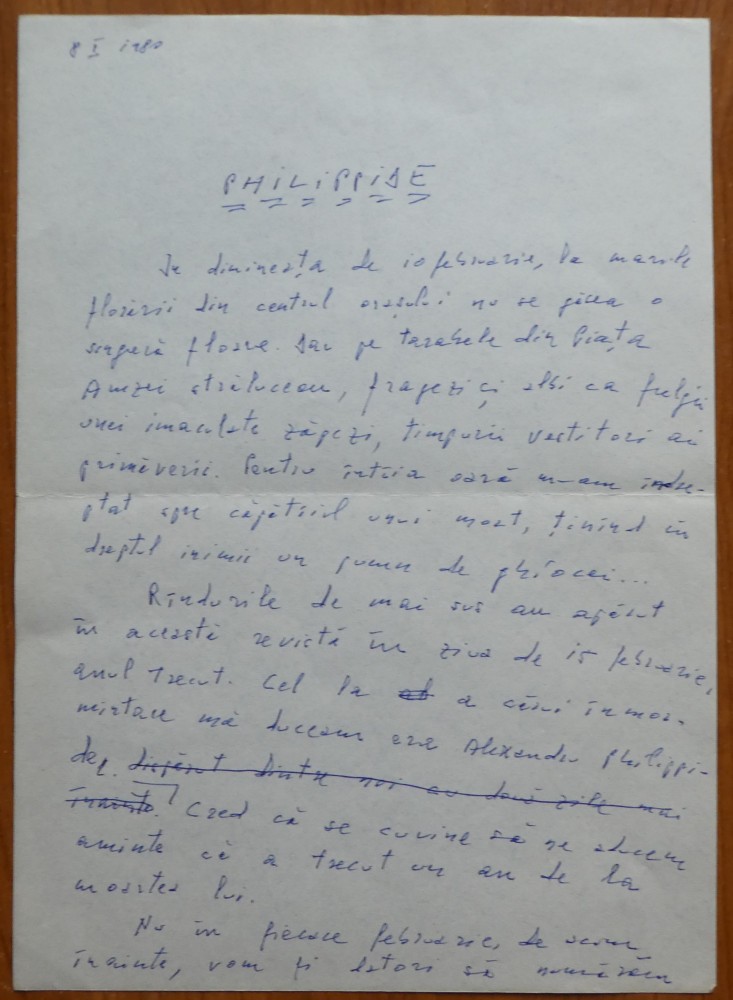 8 I 1980
PHILIPPIDE
În dimineața de 10 februarie, la marile
florării din centrul orașului nu se găsea o
singură floare. Dar pe tarabele din Piața
Amzei străluceau, fragezi și albi ca fulgii
unei imaculate zăpezi, timpurii vestitori ai
primăverii. Pentru întîia oară m-am îndre-
ptat spre căpătîiul unui mort, ținînd în
dreptul inimii un pumn de ghiocei...
Rîndurile de mai sus au apărut
în această revistă în ziua de 15 februarie,
anul trecut. Cel la a cărui înmor-
mîntare mă duceam era Alexandru Philippi-
de, dispărut dintre noi cu două zile mai
înainte. Cred că se cuvine să ne aducem
aminte că a trecut un an de la
moartea lui.
Nu în fiecare februarie, de acum
înainte, vom fi datori să numărăm